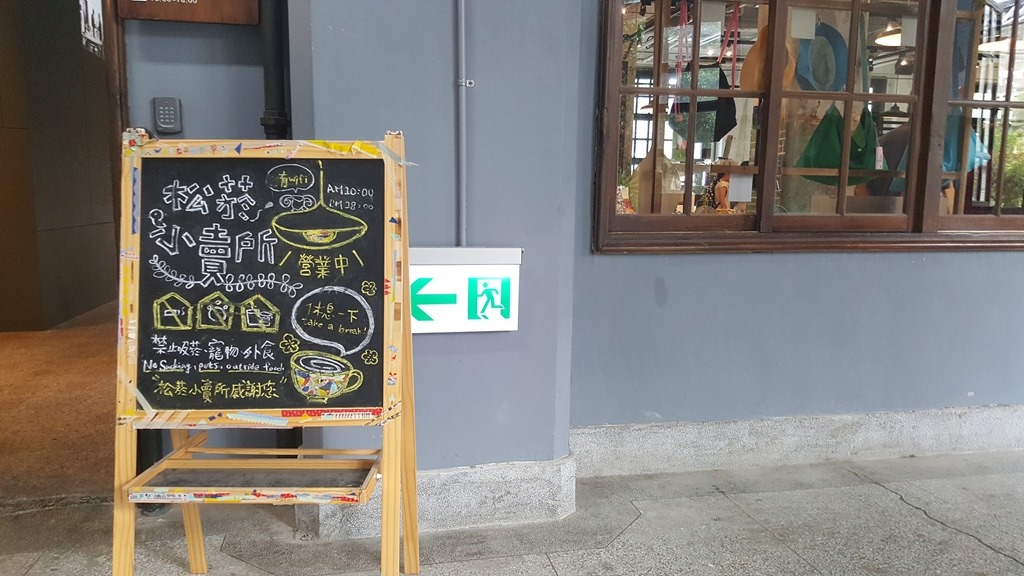 松菸
小賣所
有wifi
AM10:00
PM18:00
營業中
休息一下
take a break!
禁止吸菸·寵物·外食
No Smoking, pets, outside food
"松菸小賣所感謝您"